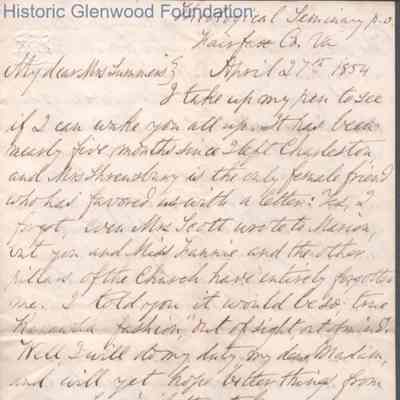 Historic Glenwood Foundation
Theological Seminary P.O.
Fairfax Co. Va
My dear Mrs Summers, April 27th 1854
I take up my pen to see
if I can wake you all up. It has been
nearly five months since I left Charleston
and Mrs Shrewsbury is the only female friend
who has favored us with a letter: Yes, I
forgot, even Mrs Scott wrote to Marion,
but you and Miss Fannie, and the other
pillars of the Church have entirely forgotten
me. I told you it would be so true
Kanawha fashion, "out of sight, out of mind".
Well I will do my duty, my dear Madam,
and will yet hope better things from